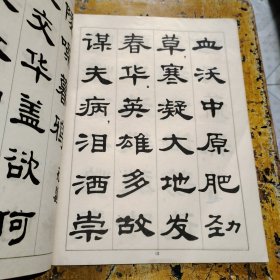 血沃中原肥劲
草寒凝大地发
春华英雄多故
谋夫病泪洒崇
交华盖欲何